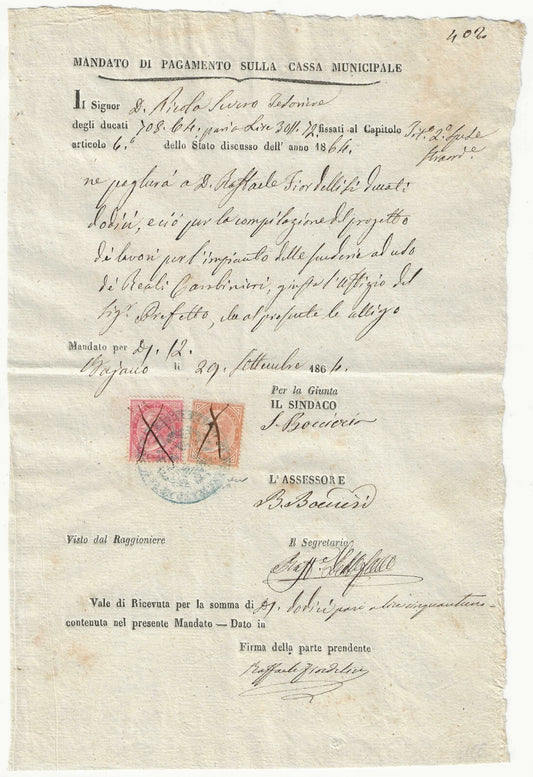 402
MANDATO DI PAGAMENTO SULLA CASSA MUNICIPALE
Il Signor D. Nicola Severo Tesoriere
degli ducati 708.64. pari a Lire 3011.72 fissati al Capitolo
articolo 6.º dello Stato discusso dell' anno 1864.
ne pagherà a D. Raffaele Fiordellisi ducati
dodici, e ciò per la compilazione del progetto
de' lavori per l'impianto delle scuderie ad uso
de' Reali Carabinieri, giusta l'uffizio del
Sig.r Prefetto, che al presente le alligo
Mandato per D.i 12.
Bajano li 29 Settembre 1864.
Per la Giunta
IL SINDACO
L'ASSESSORE
Visto dal Raggioniere
Il Segretario
Vale di Ricevuta per la somma di D.i dodici pari a lire cinquantuno
contenuta nel presente Mandato — Dato in
Firma della parte prendente
Raffaele Fiordelisi